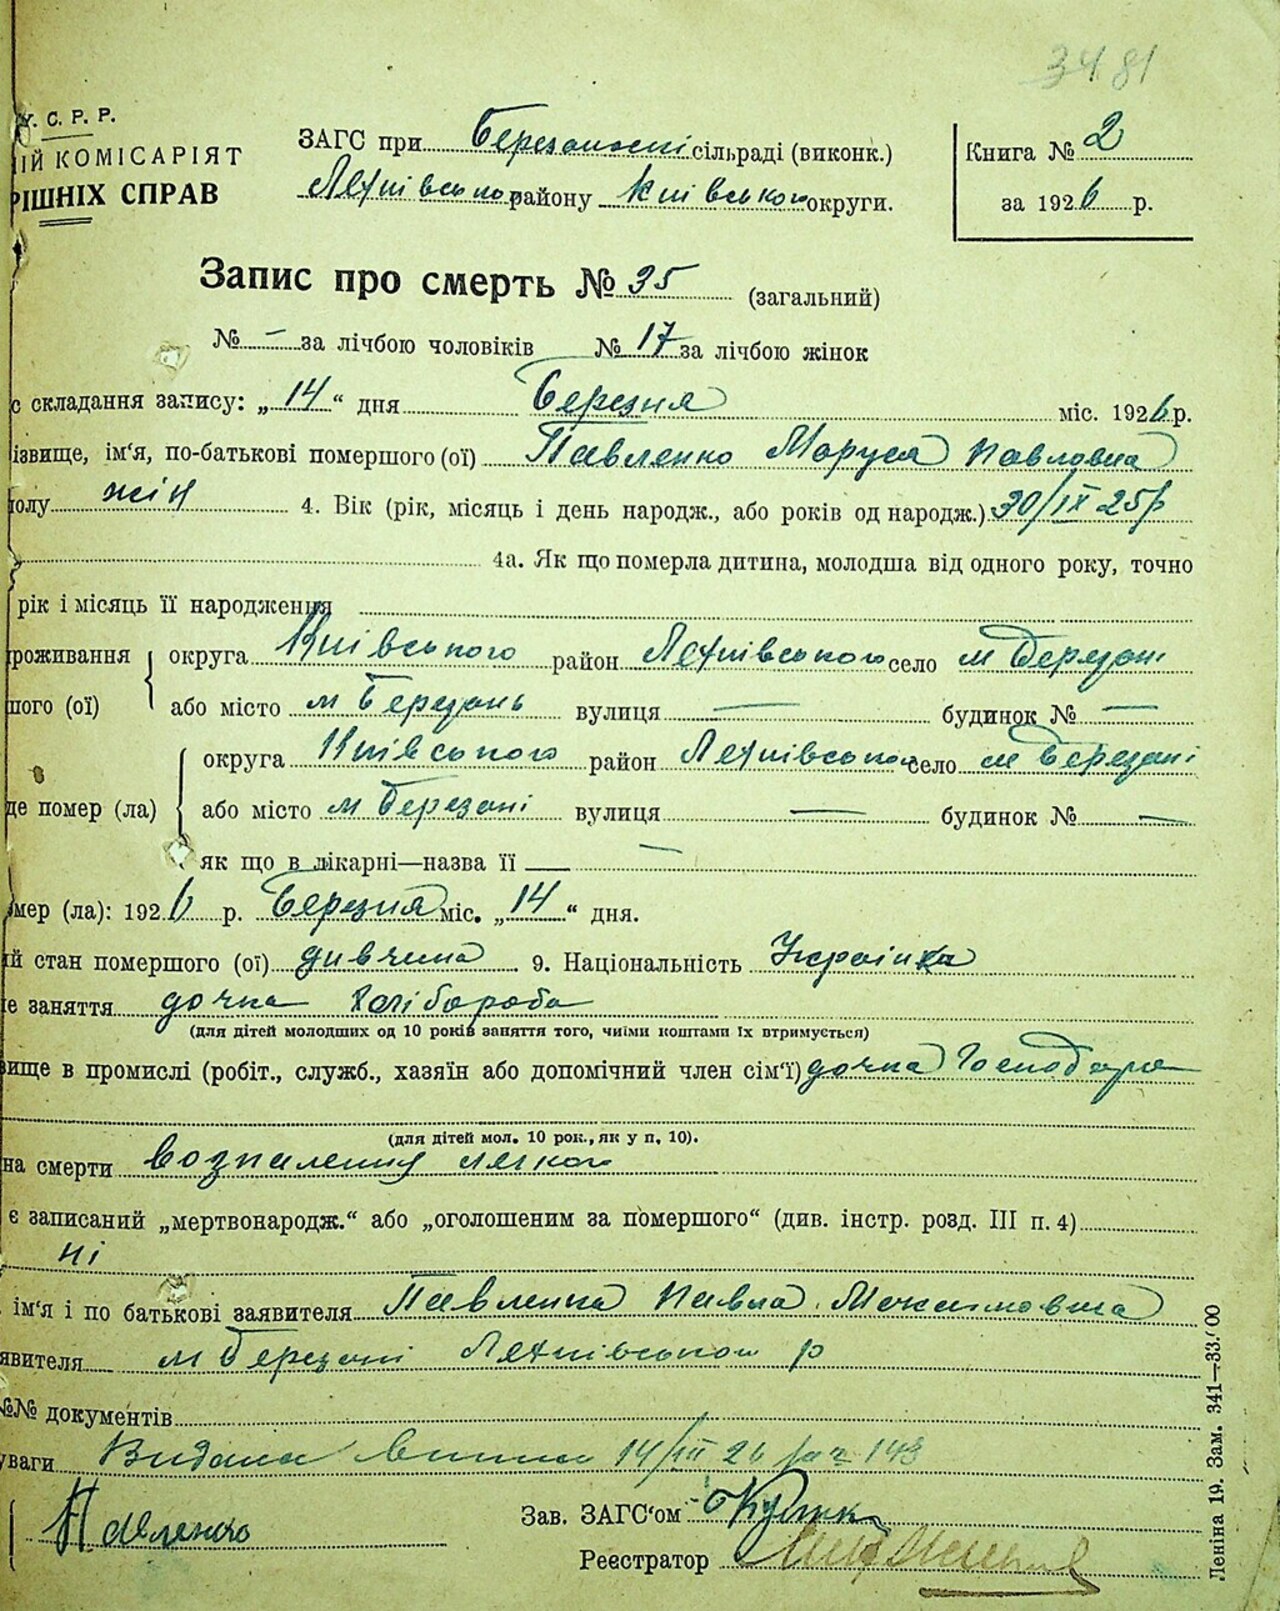 34 81
У. С. Р. Р.
ІЙ КОМІСАРІЯТ
РІШНІХ СПРАВ
ЗАГС при Березанскі сільраді (виконк.)
Яготівського району Київського округи.
Книга № 2
за 1926 р.
Запис про смерть № 35 (загальний)
№ - за лічбою чоловіків № 17 за лічбою жінок
с складання запису: „14“ дня Березня міс. 1926 р.
ізвище, ім'я, по-батькові помершого (ої) Павленко Маруся Павловна
полу жін 4. Вік (рік, місяць і день народж., або років од народж.) 30/IX 25 р
4а. Як що померла дитина, молодша від одного року, точно
рік і місяць її народження
роживання округа Київського район село м Березані
шого (ої) або місто м Березань вулиця — будинок № —
округа Київського район село м Березані
де помер (ла) або місто м Березані вулиця — будинок № —
як що в лікарні—назва її —
мер (ла): 1926 р. Березня міс. „14“ дня.
ій стан помершого (ої) дивчина 9. Національність Українка
е заняття дочка хлібороба
(для дітей молодших од 10 років заняття того, чиїми коштами їх втримується)
вище в промислі (робіт., служб., хазяїн або допомічний член сім'ї) дочка Господаря
(для дітей мол. 10 рок., як у п. 10).
на смерти возпаления легких
є записаний „мертвонародж.“ або „оголошеним за помершого“ (див. інстр. розд. III п. 4)
ні
ім'я і по батькові заявителя Павленка Павла Максимовича
явителя м Березані р
№№ документів
уваги Видана 14/III 26 143
Павленко
Зав. ЗАГС'ом
Реєстратор
Леніна 19. Зам. 341—33.000